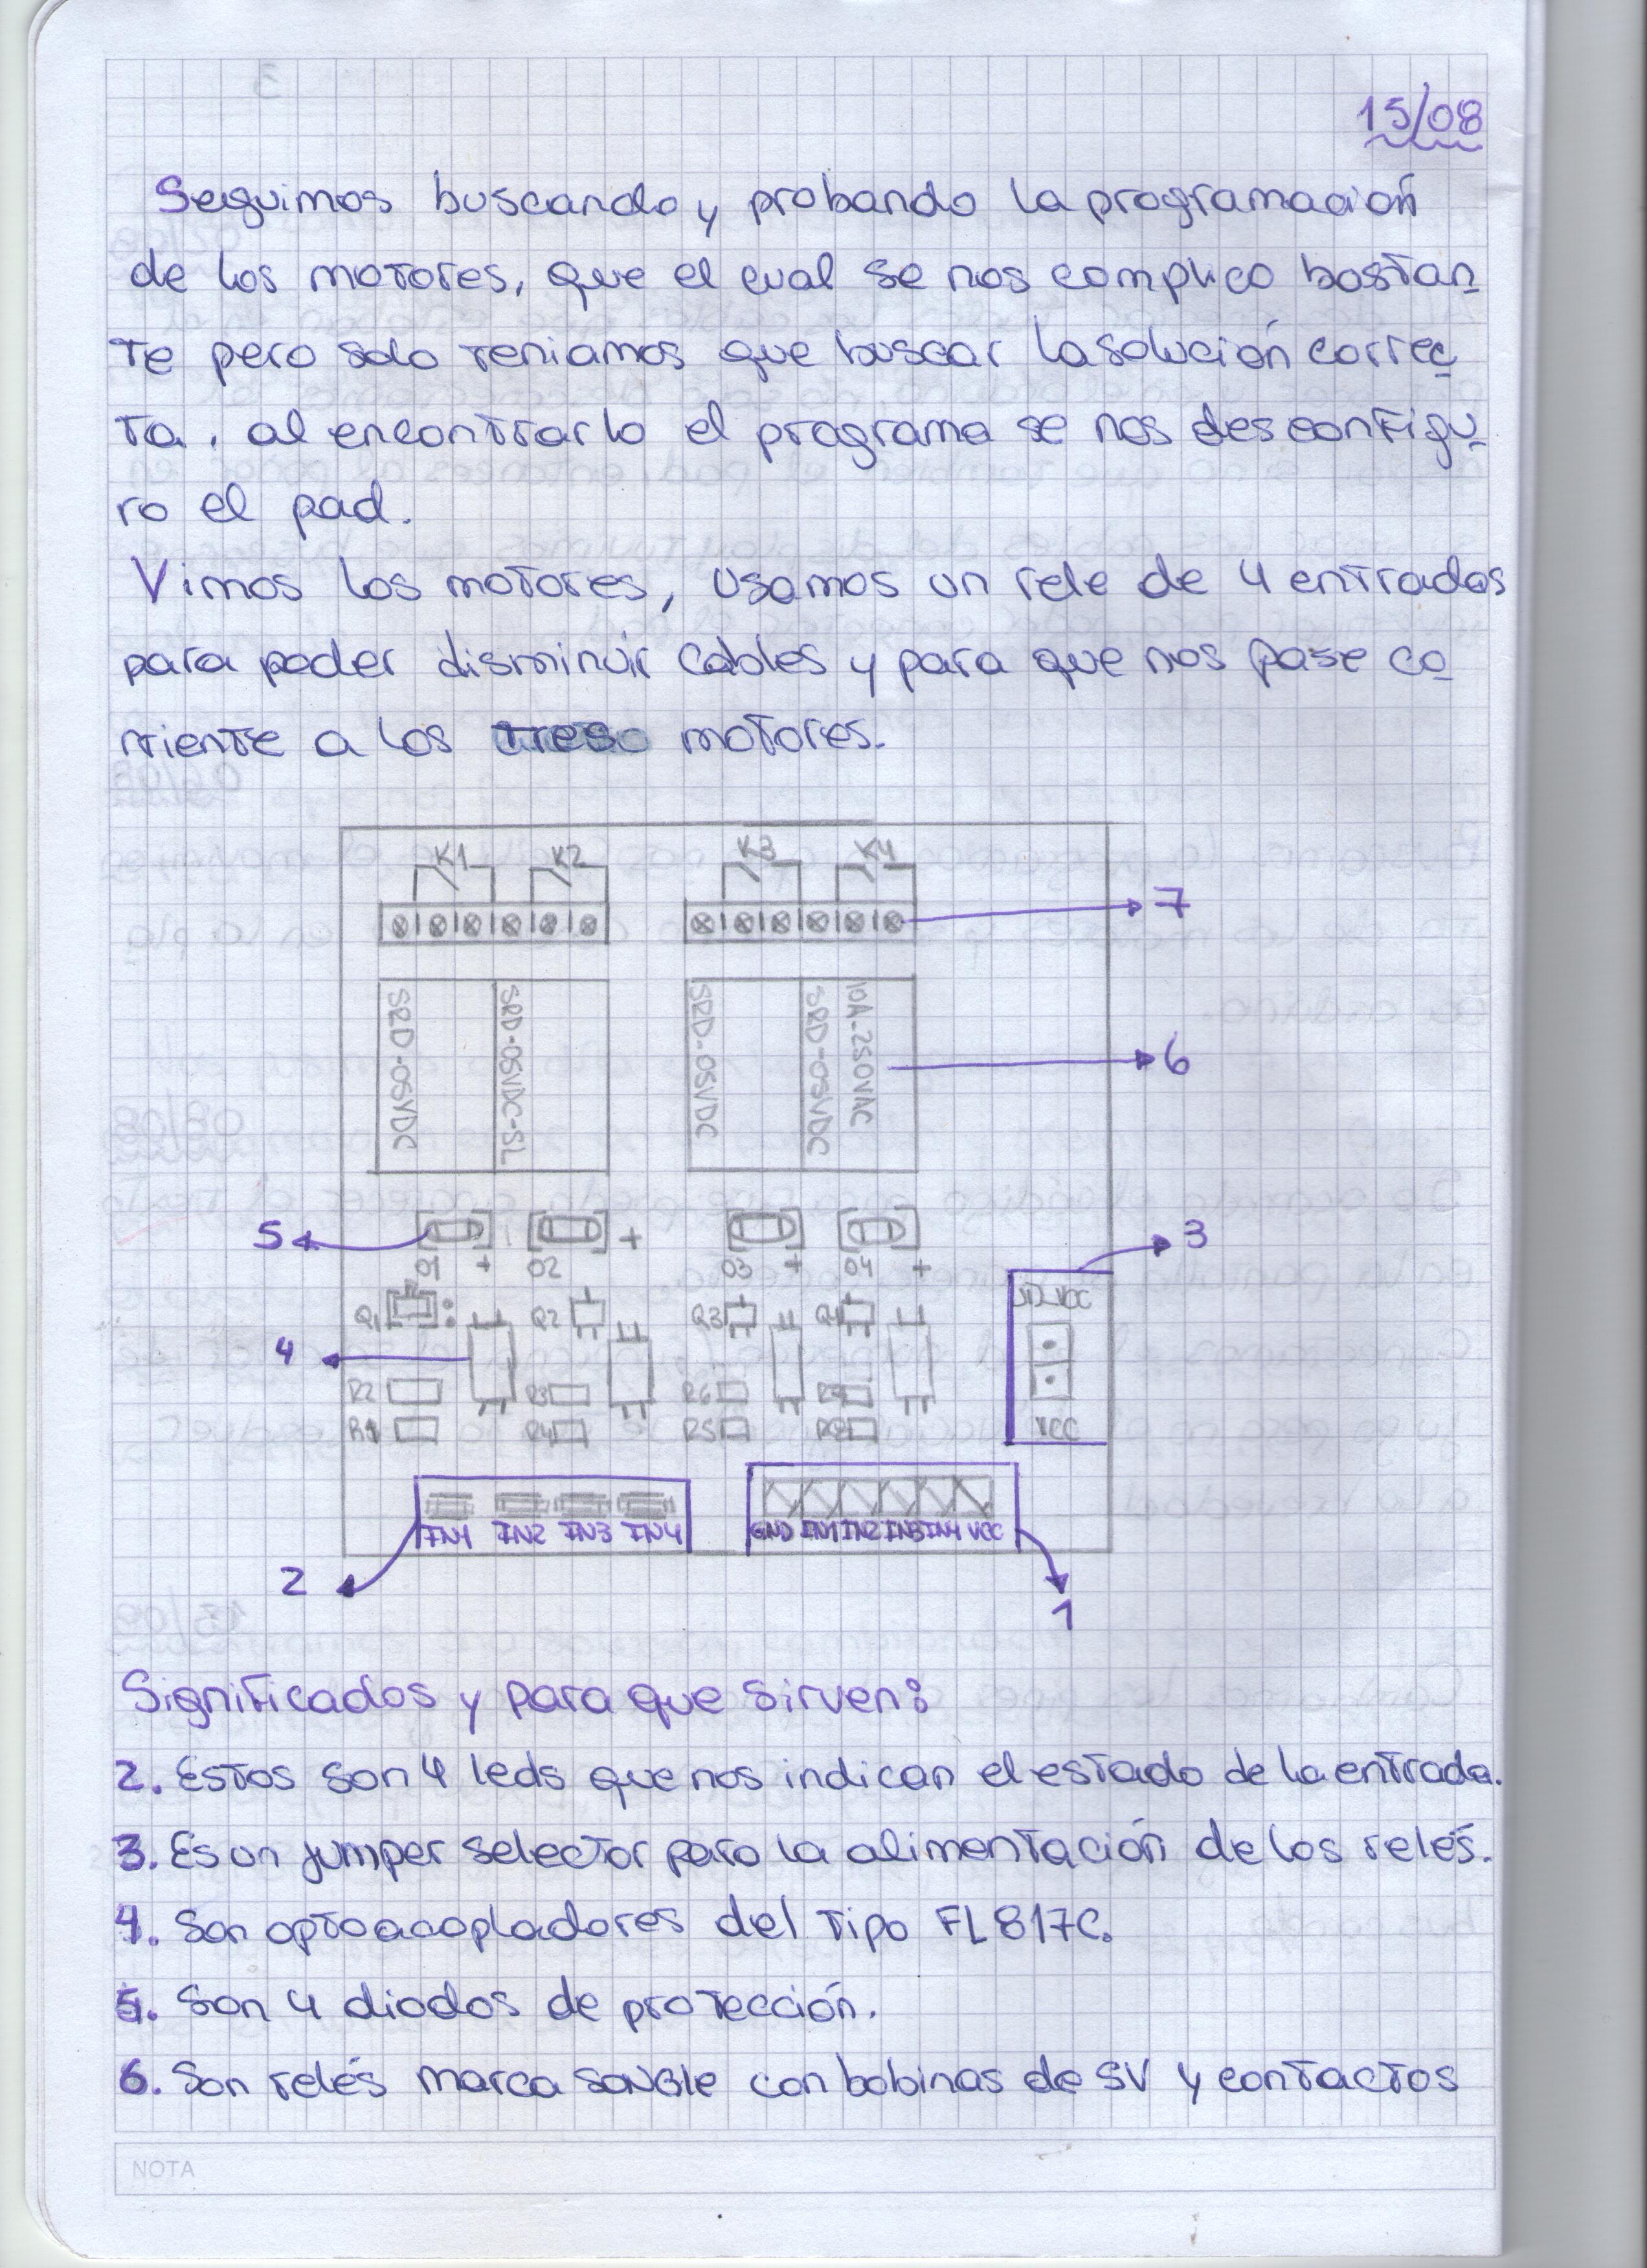 15/08
Seguimos buscando y probando la programación
de los motores, que el cual se nos complico bastan
te pero solo teniamos que buscar la solución correc
ta, al encontrarlo el programa se nos desconfigu
ro el pad.
Vimos los motores, usamos un rele de 4 entradas
para poder disminuir cables y para que nos pase co
rriente a los motores.
K1 K2 K3 K4
7
SRD-05VDC SRD-05VDC-SL SRD-05VDC SRD-05VDC 10A-250VAC
6
5
3
+
D1 + D2 D3 + D4 +
JD_VCC
Q1 Q2 Q3 Q4
4
R2 R3 R6
R4 R5
VCC
IN1 IN2 IN3 IN4
GND IN1 IN2 IN3 IN4 VCC
2
1
Significados y para que sirven:
2. Estos son 4 leds que nos indican el estado de la entrada.
3. Es un jumper selector para la alimentación de los relés.
4. Son optoacopladores del tipo FL817C.
5. Son 4 diodos de protección.
6. Son relés marca SONGle con bobinas de 5V y contactos
NOTA